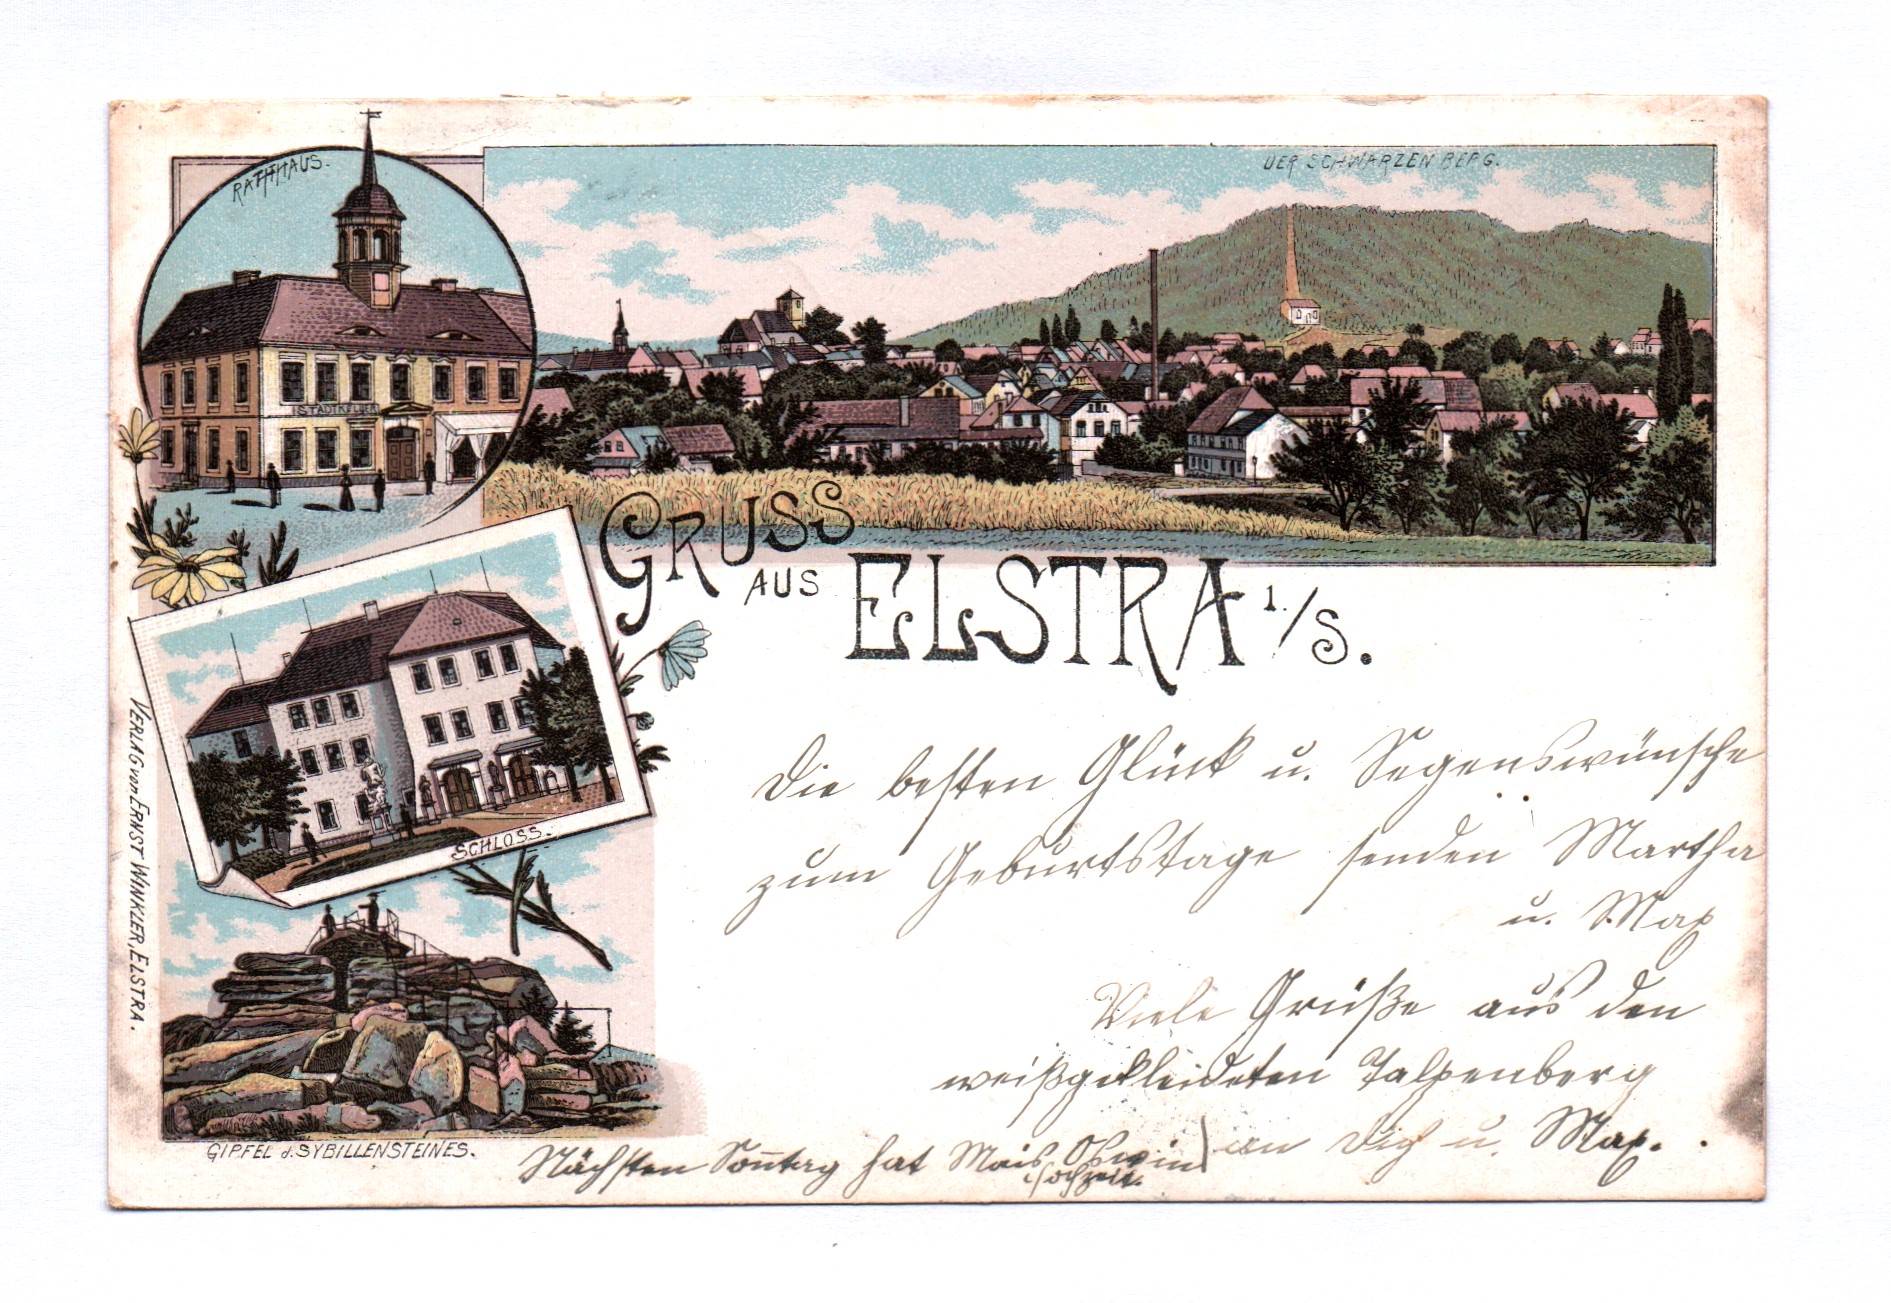 RATHHAUS.
DER SCHWARZEN BERG.
STADTKELLER
GRUSS
AUS ELSTRA i./S.
SCHLOSS.
VERLAG von ERNST WINKLER, ELSTRA.
GIPFEL d. SYBILLENSTEINES.
Die besten Glück u. Segenswünsche
zum Geburtstage senden Martha
u. Max
Viele Grüße aus den
weißgekleideten
an Dich u. Max.
Nächsten Sonntag hat
Hochzeit.